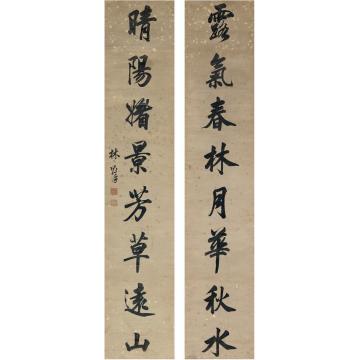 露氣春林月華秋水
晴陽㬇景芳草遠山
林則徐